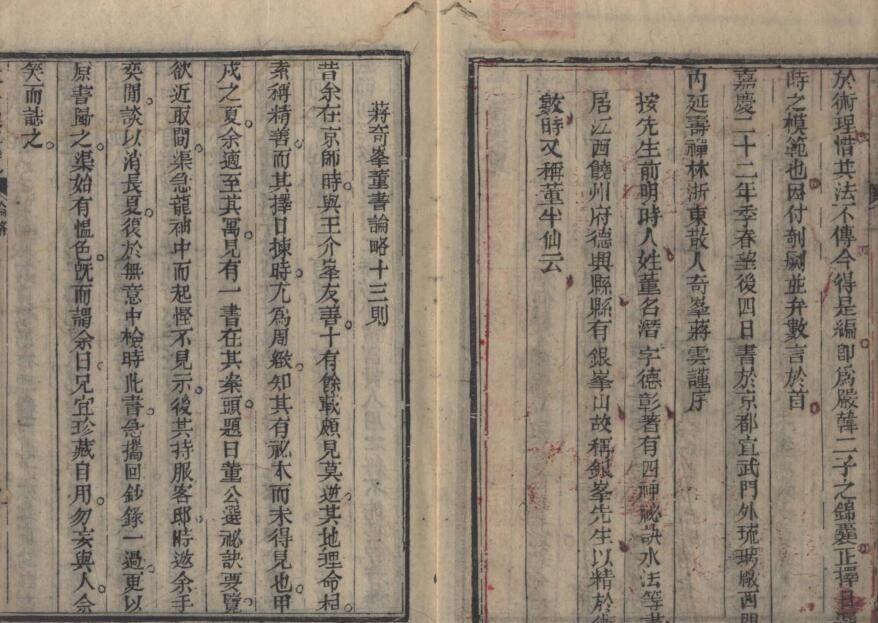 於術理惜其法不傳今得是編即為嚴韓二子之錦囊正擇日
時之模範也因付剞劂並弁數言於首
嘉慶二十二年季春望後四日書於京都宣武門外琉璃廠西門
內延壽禪林浙東散人奇峯蔣雲謹序
按先生前明時人姓董名潛字德彰著有四神祕訣水法等書
居江西饒州府德興縣縣有銀峯山故稱銀峯先生以精於
數時又稱董半仙云
蔣奇峯董書論略十三則
昔余在京師時與王介峯友善十有餘載頗見莫逆其地理命相
素稱精善而其擇日揀時尤為周緻知其有祕本而未得見也甲
戌之夏余適至其寓見有一書在其案頭題曰董公選祕訣要覽
欲近取閱渠急籠袖中而起慳不見示後其持服客邸時邀余手
奕閒談以消長夏復於無意中檢時此書急攜回鈔錄一過更以
原書歸之渠始有慍色旣而謂余曰兄宜珍藏自用勿妄與人余
笑而誌之